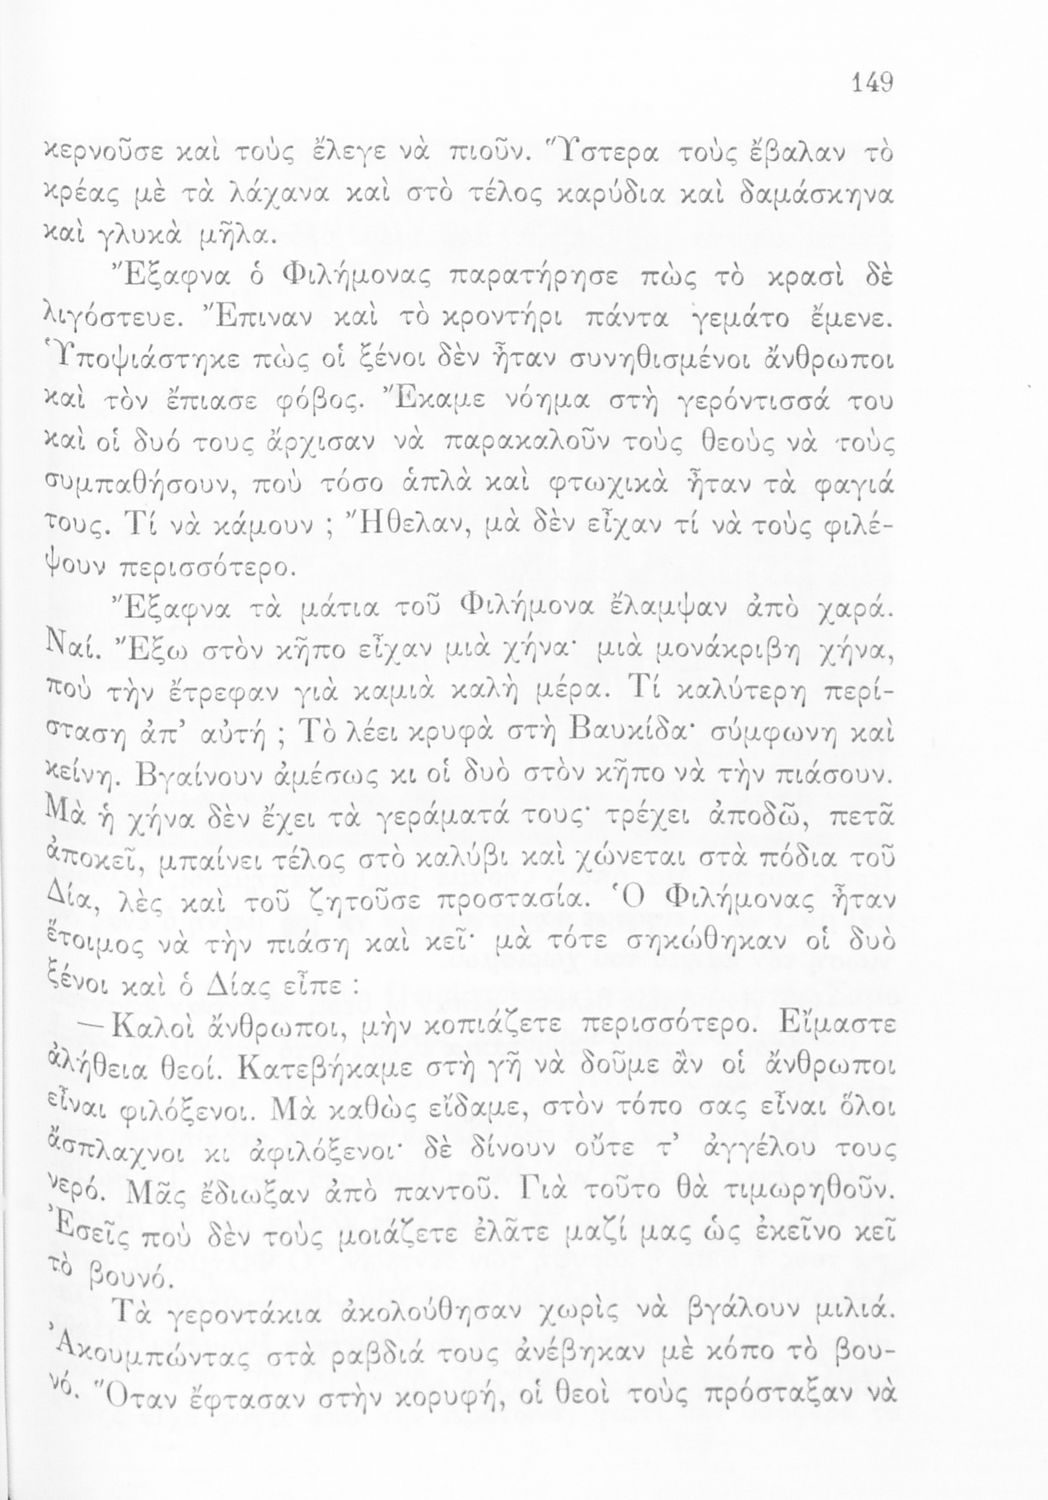 149
κερνοῦσε καὶ τοὺς ἔλεγε νὰ πιοῦν. Ὕστερα τοὺς ἔβαλαν τὸ
κρέας μὲ τὰ λάχανα καὶ στὸ τέλος καρύδια καὶ δαμάσκηνα
καὶ γλυκὰ μῆλα.
Ἔξαφνα ὁ Φιλήμονας παρατήρησε πὼς τὸ κρασὶ δὲ
λιγόστευε. Ἔπιναν καὶ τὸ κροντήρι πάντα γεμάτο ἔμενε.
Ὑποψιάστηκε πὼς οἱ ξένοι δὲν ἦταν συνηθισμένοι ἄνθρωποι
καὶ τὸν ἔπιασε φόβος. Ἔκαμε νόημα στὴ γερόντισσά του
καὶ οἱ δυό τους ἄρχισαν νὰ παρακαλοῦν τοὺς θεοὺς νὰ τοὺς
συμπαθήσουν, ποὺ τόσο ἁπλὰ καὶ φτωχικὰ ἦταν τὰ φαγιά
τους. Τί νὰ κάμουν ; Ἤθελαν, μὰ δὲν εἶχαν τί νὰ τοὺς φιλέ-
ψουν περισσότερο.
Ἔξαφνα τὰ μάτια τοῦ Φιλήμονα ἔλαμψαν ἀπὸ χαρά.
Ναί. Ἔξω στὸν κῆπο εἶχαν μιὰ χήνα· μιὰ μονάκριβη χήνα,
ποὺ τὴν ἔτρεφαν γιὰ καμιὰ καλὴ μέρα. Τί καλύτερη περί-
σταση ἀπ’ αὐτή ; Τὸ λέει κρυφὰ στὴ Βαυκίδα· σύμφωνη καὶ
κείνη. Βγαίνουν ἀμέσως κι οἱ δυὸ στὸν κῆπο νὰ τὴν πιάσουν.
Μὰ ἡ χήνα δὲν ἔχει τὰ γεράματά τους· τρέχει ἀποδῶ, πετᾶ
ἀποκεῖ, μπαίνει τέλος στὸ καλύβι καὶ χώνεται στὰ πόδια τοῦ
Δία, λὲς καὶ τοῦ ζητοῦσε προστασία. Ὁ Φιλήμονας ἦταν
ἕτοιμος νὰ τὴν πιάση καὶ κεῖ· μὰ τότε σηκώθηκαν οἱ δυὸ
ξένοι καὶ ὁ Δίας εἶπε :
— Καλοὶ ἄνθρωποι, μὴν κοπιάζετε περισσότερο. Εἴμαστε
ἀλήθεια θεοί. Κατεβήκαμε στὴ γῆ νὰ δοῦμε ἂν οἱ ἄνθρωποι
εἶναι φιλόξενοι. Μὰ καθὼς εἴδαμε, στὸν τόπο σας εἶναι ὅλοι
ἄσπλαχνοι κι ἀφιλόξενοι· δὲ δίνουν οὔτε τ’ ἀγγέλου τους
νερό. Μᾶς ἔδιωξαν ἀπὸ παντοῦ. Γιὰ τοῦτο θὰ τιμωρηθοῦν.
Ἐσεῖς ποὺ δὲν τοὺς μοιάζετε ἐλᾶτε μαζί μας ὡς ἐκεῖνο κεῖ
τὸ βουνό.
Τὰ γεροντάκια ἀκολούθησαν χωρὶς νὰ βγάλουν μιλιά.
Ἀκουμπώντας στὰ ραβδιά τους ἀνέβηκαν μὲ κόπο τὸ βου-
νό. Ὅταν ἔφτασαν στὴν κορυφή, οἱ θεοὶ τοὺς πρόσταξαν νὰ